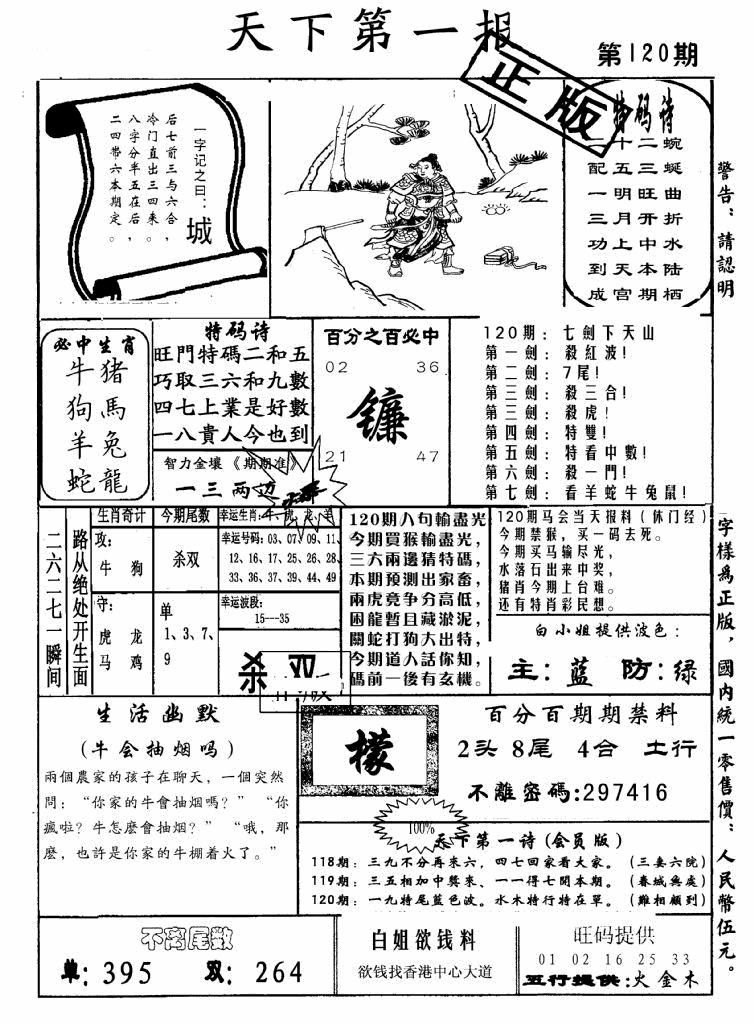 天下第一报
第120期
正版
一字记之曰：
城
后七前三与六合，
冷门直出三四来。
八字分半五在后，
二四带六本期定。
特码诗
二十二蜿
配五三蜒
一明旺曲
三月开折
功上中水
到天本陆
成宫期栖
警告：請認明
字様爲正版，國内統一零售價：人民幣伍元。
必中生肖
牛豬
狗馬
羊兔
蛇龍
特码诗
旺門特碼二和五
巧取三六和九數
四七上業是好數
一八貴人今也到
智力金壤《期期准》
一三两边
百分之百必中
02 36
镰
21 47
120期：七劍下天山
第一劍：殺紅波！
第二劍：7尾！
第三劍：殺三合！
第三劍：殺虎！
第四劍：特雙！
第五劍：特看中數！
第六劍：殺一門！
第七劍：看羊蛇牛兔鼠！
二六二七一瞬间
路从绝处开生面
生肖奇计
攻：
牛 狗
守：
虎 龙
马 鸡
今期尾数
杀双
单
1、3、7、
9
幸运生肖：牛、虎、龙、羊
幸运号码：03、07、09、11、
12、16、17、25、26、28、
33、36、37、39、44、49
幸运波段：
15—35
杀 双
120期八句輸盡光
今期買猴輸盡光，
三六兩邊猜特碼，
本期預測出家畜，
兩虎竞争分高低，
困龍暫且藏淤泥，
關蛇打狗大出特，
今期道人話你知，
碼前一後有玄機。
120期马会当天报料（休门经）
今期禁猴，买一码去死。
今期买马输尽光，
水落石出来中奖，
猪肖今期上台难。
还有特肖彩民想。
白小姐提供波色：
主：蓝 防：绿
生活幽默
(牛会抽烟吗)
兩個農家的孩子在聊天，一個突然
問：“你家的牛會抽烟嗎？” “你
瘋啦？牛怎麽會抽烟？” “哦，那
麽，也許是你家的牛棚着火了。”
檬
百分百期期禁料
2头 8尾 4合 土行
不離密碼:297416
100%
天下第一诗(会员版)
118期：三九不分再来六，四七回家看大家。（三妻六院）
119期：三五相加中獎来、一一得七開本期。（春城無處）
120期：一九特尾藍色波。水木特行特在單。（難相顧到）
不离尾数
单: 395 双: 264
白姐欲钱料
欲钱找香港中心大道
旺码提供
01 02 16 25 33
五行提供:火金木